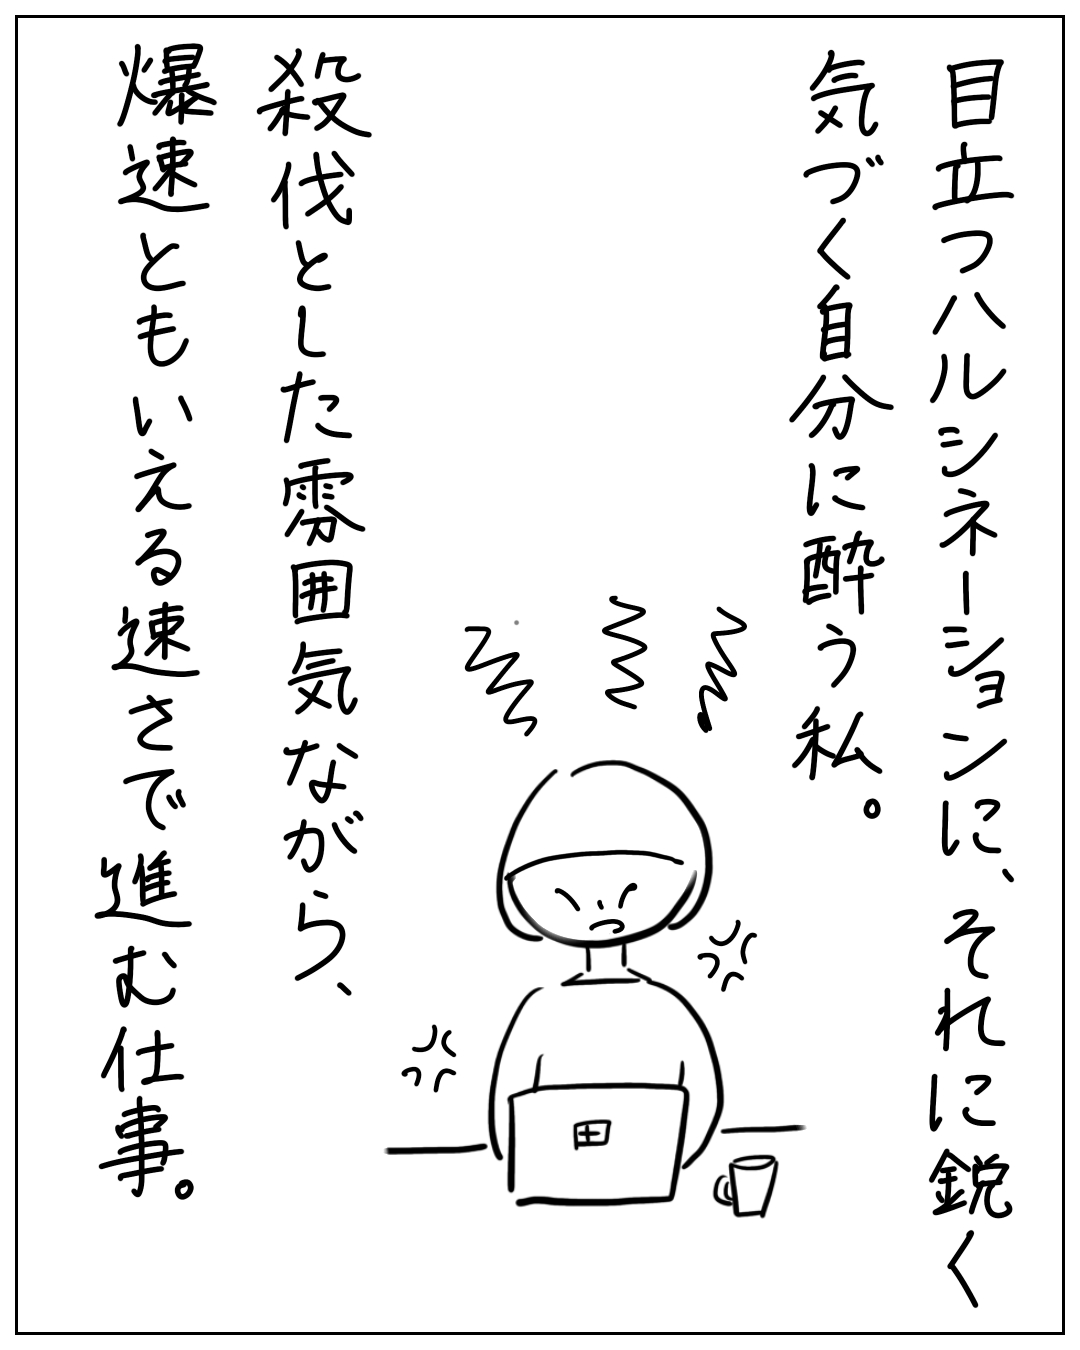 目立つハルシネーションに、それに鋭く
気づく自分に酔う私。
殺伐とした雰囲気ながら、
爆速ともいえる速さで進む仕事。